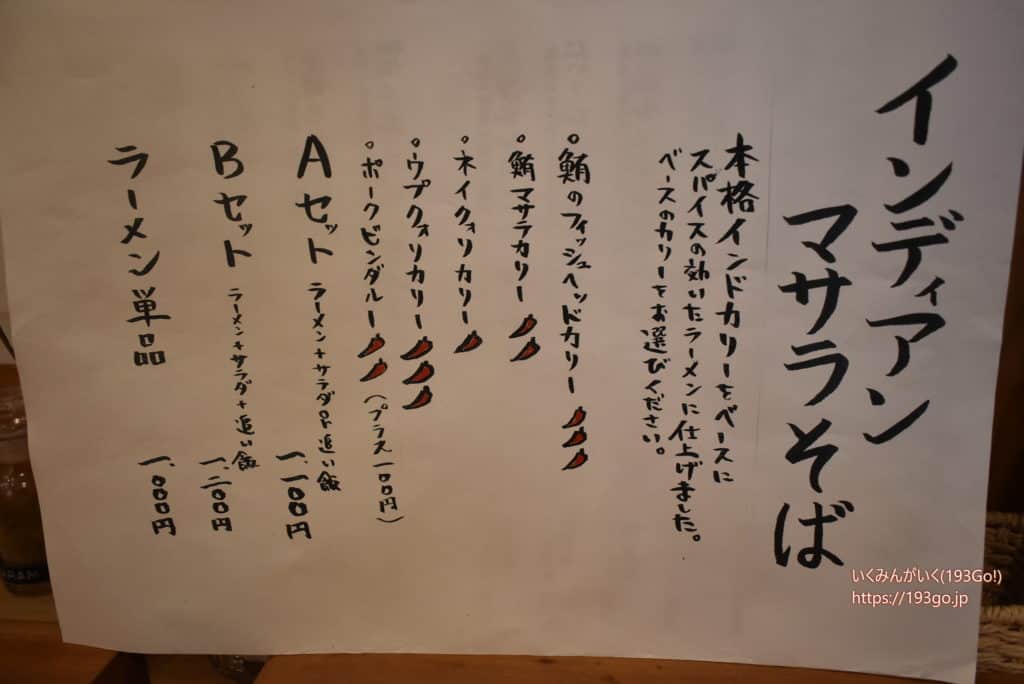 インディアン
マサラそば
本格インドカリーをベースに
スパイスの効いたラーメンに仕上げました。
ベースのカリーをお選びください。
。鮪のフィッシュヘッドカリー
。鮪マサラカリー
。ネイクォリカリー
。ウプクォリカリー
。ポークビンダルー(プラス一〇〇円)
Aセット ラーメン+サラダor追い飯 一、一〇〇円
Bセット ラーメン+サラダ+追い飯 一、二〇〇円
ラーメン単品 一、〇〇〇円
いくみんがいく(193Go!)
https://193go.jp